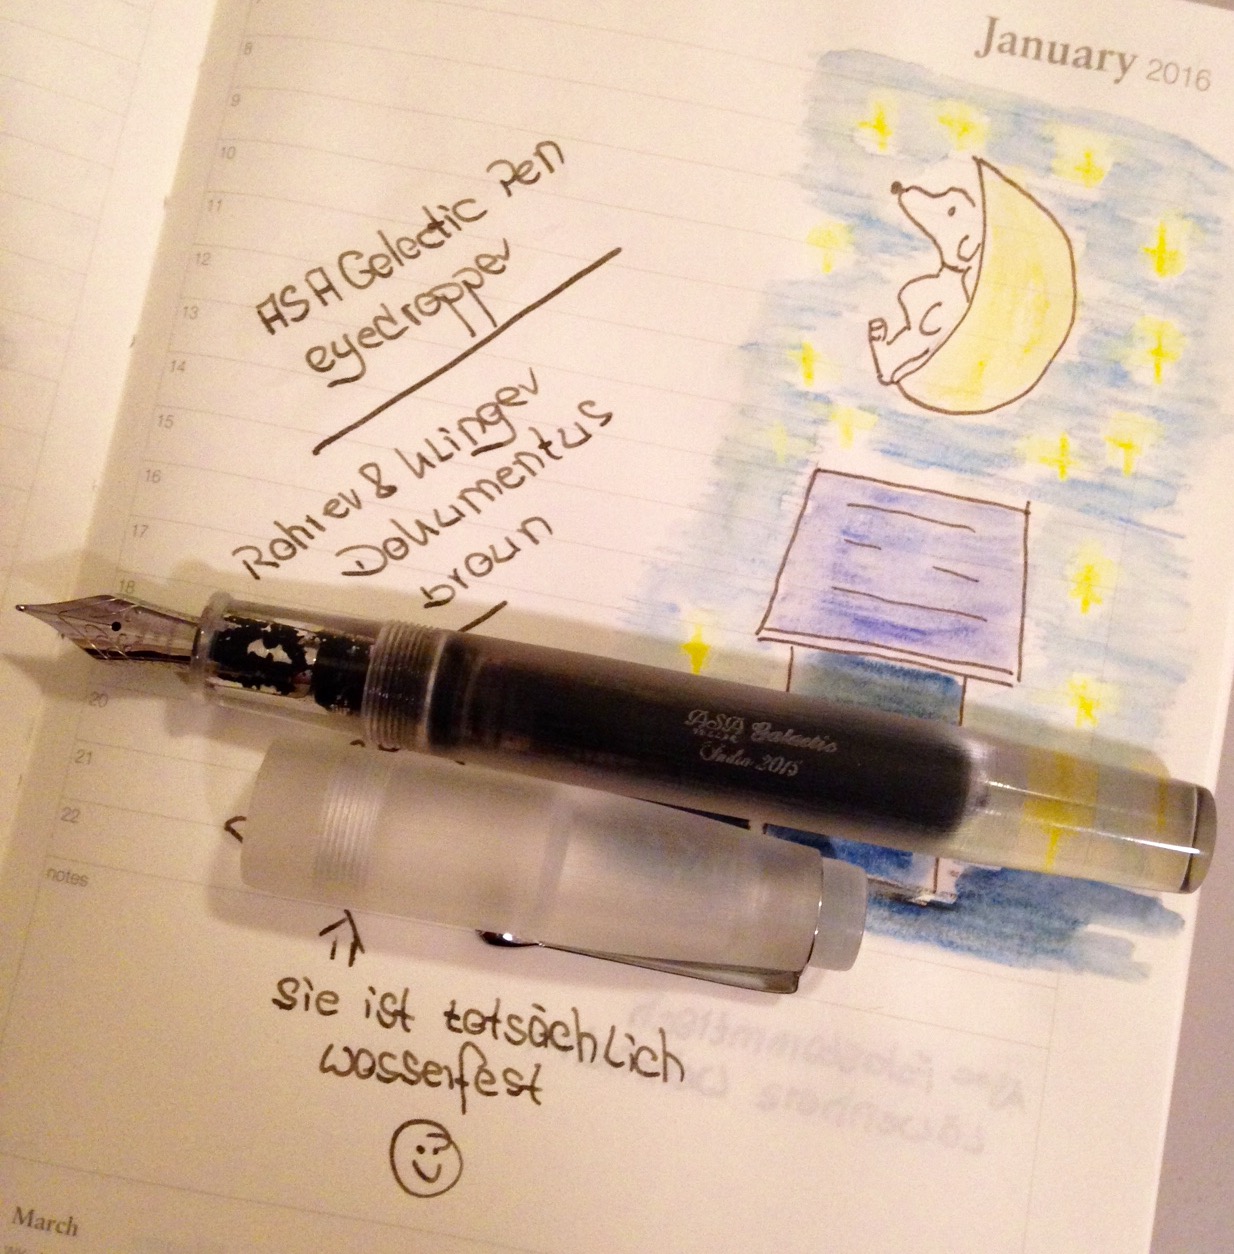 January 2016
8
9
10
11
12
13
14
15
16
17
18
20
21
22
notes
ASA Galactic Pen
eyedropper
Rohrer & Klinger
Dokumentus
braun
ASA Galactic
India 2015
sie ist tatsächlich
wasserfest
March